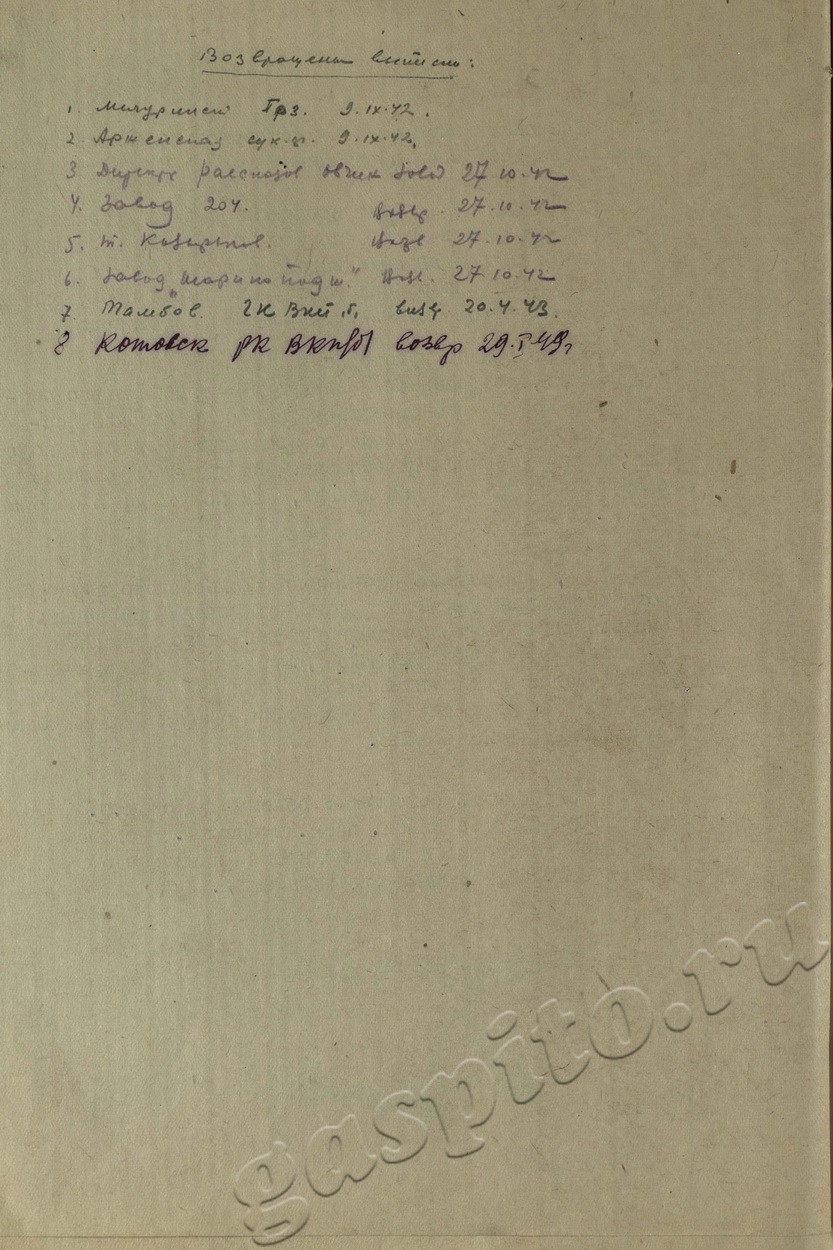 Возвращены выписки:
1. Мичуринск Грз. 9.IX.42.
2. Арженская сук.ф. 9.IX.42.
3. Директ Рассказов овчин завод 27.10.42
4. Завод 204. возвр. 27.10.42
5. т. возв 27.10.42
6. Завод "шарикоподш." 27.10.42
7. Тамбов. ГК ВКП(б) возвр. 20.4.43.
8 Котовск РК ВКП(б) возвр 29.I.49г
gaspito.ru